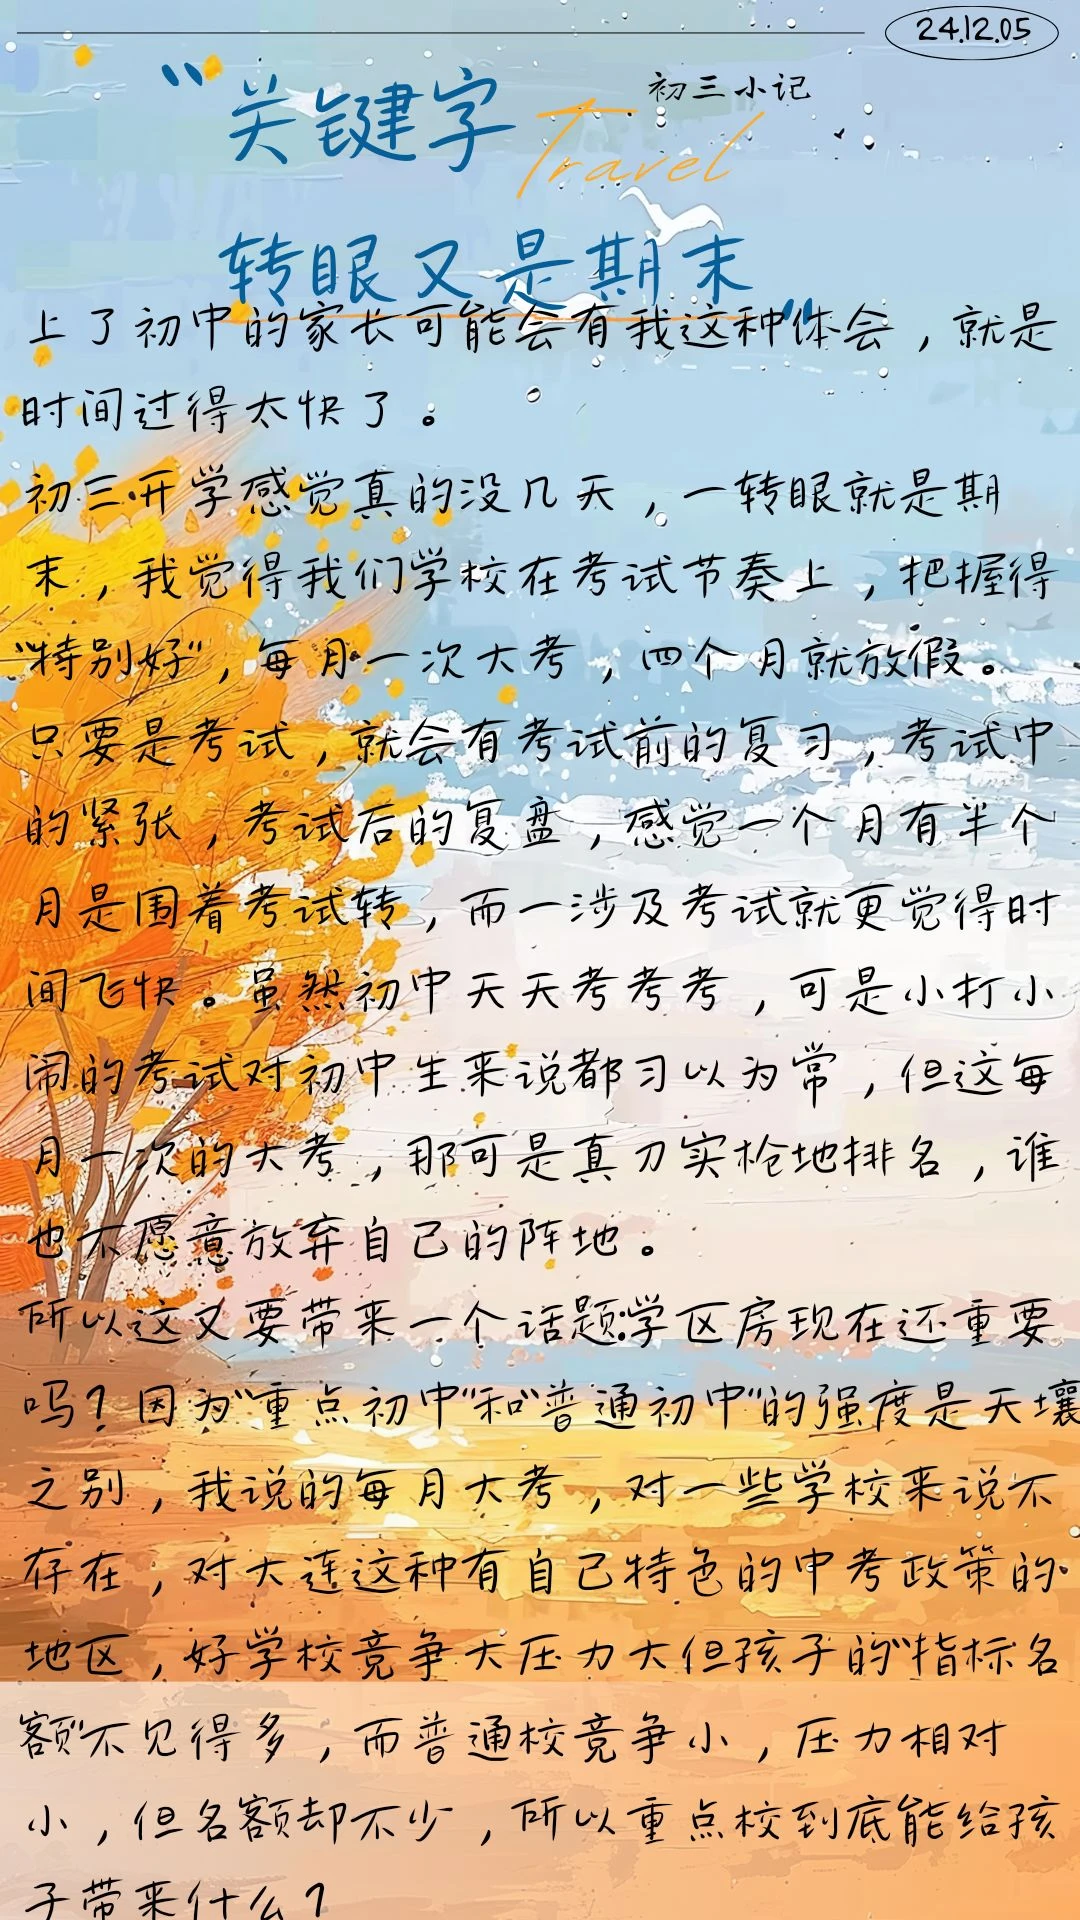 24.12.05
初三小记
“关键字
Travel
转眼又是期末”
上了初中的家长可能会有我这种体会，就是
时间过得太快了。
初三开学感觉真的没几天，一转眼就是期
末，我觉得我们学校在考试节奏上，把握得
“特别好”，每月一次大考，四个月就放假。
只要是考试，就会有考试前的复习，考试中
的紧张，考试后的复盘，感觉一个月有半个
月是围着考试转，而一涉及考试就更觉得时
间飞快。虽然初中天天考考考，可是小打小
闹的考试对初中生来说都习以为常，但这每
月一次的大考，那可是真刀实枪地排名，谁
也不愿意放弃自己的阵地。
所以这又要带来一个话题:学区房现在还重要
吗？因为“重点初中“和“普通初中“的强度是天壤
之别，我说的每月大考，对一些学校来说不
存在，对大连这种有自己特色的中考政策的
地区，好学校竞争大压力大但孩子的“指标名
额“不见得多，而普通校竞争小，压力相对
小，但名额却不少，所以重点校到底能给孩
子带来什么？